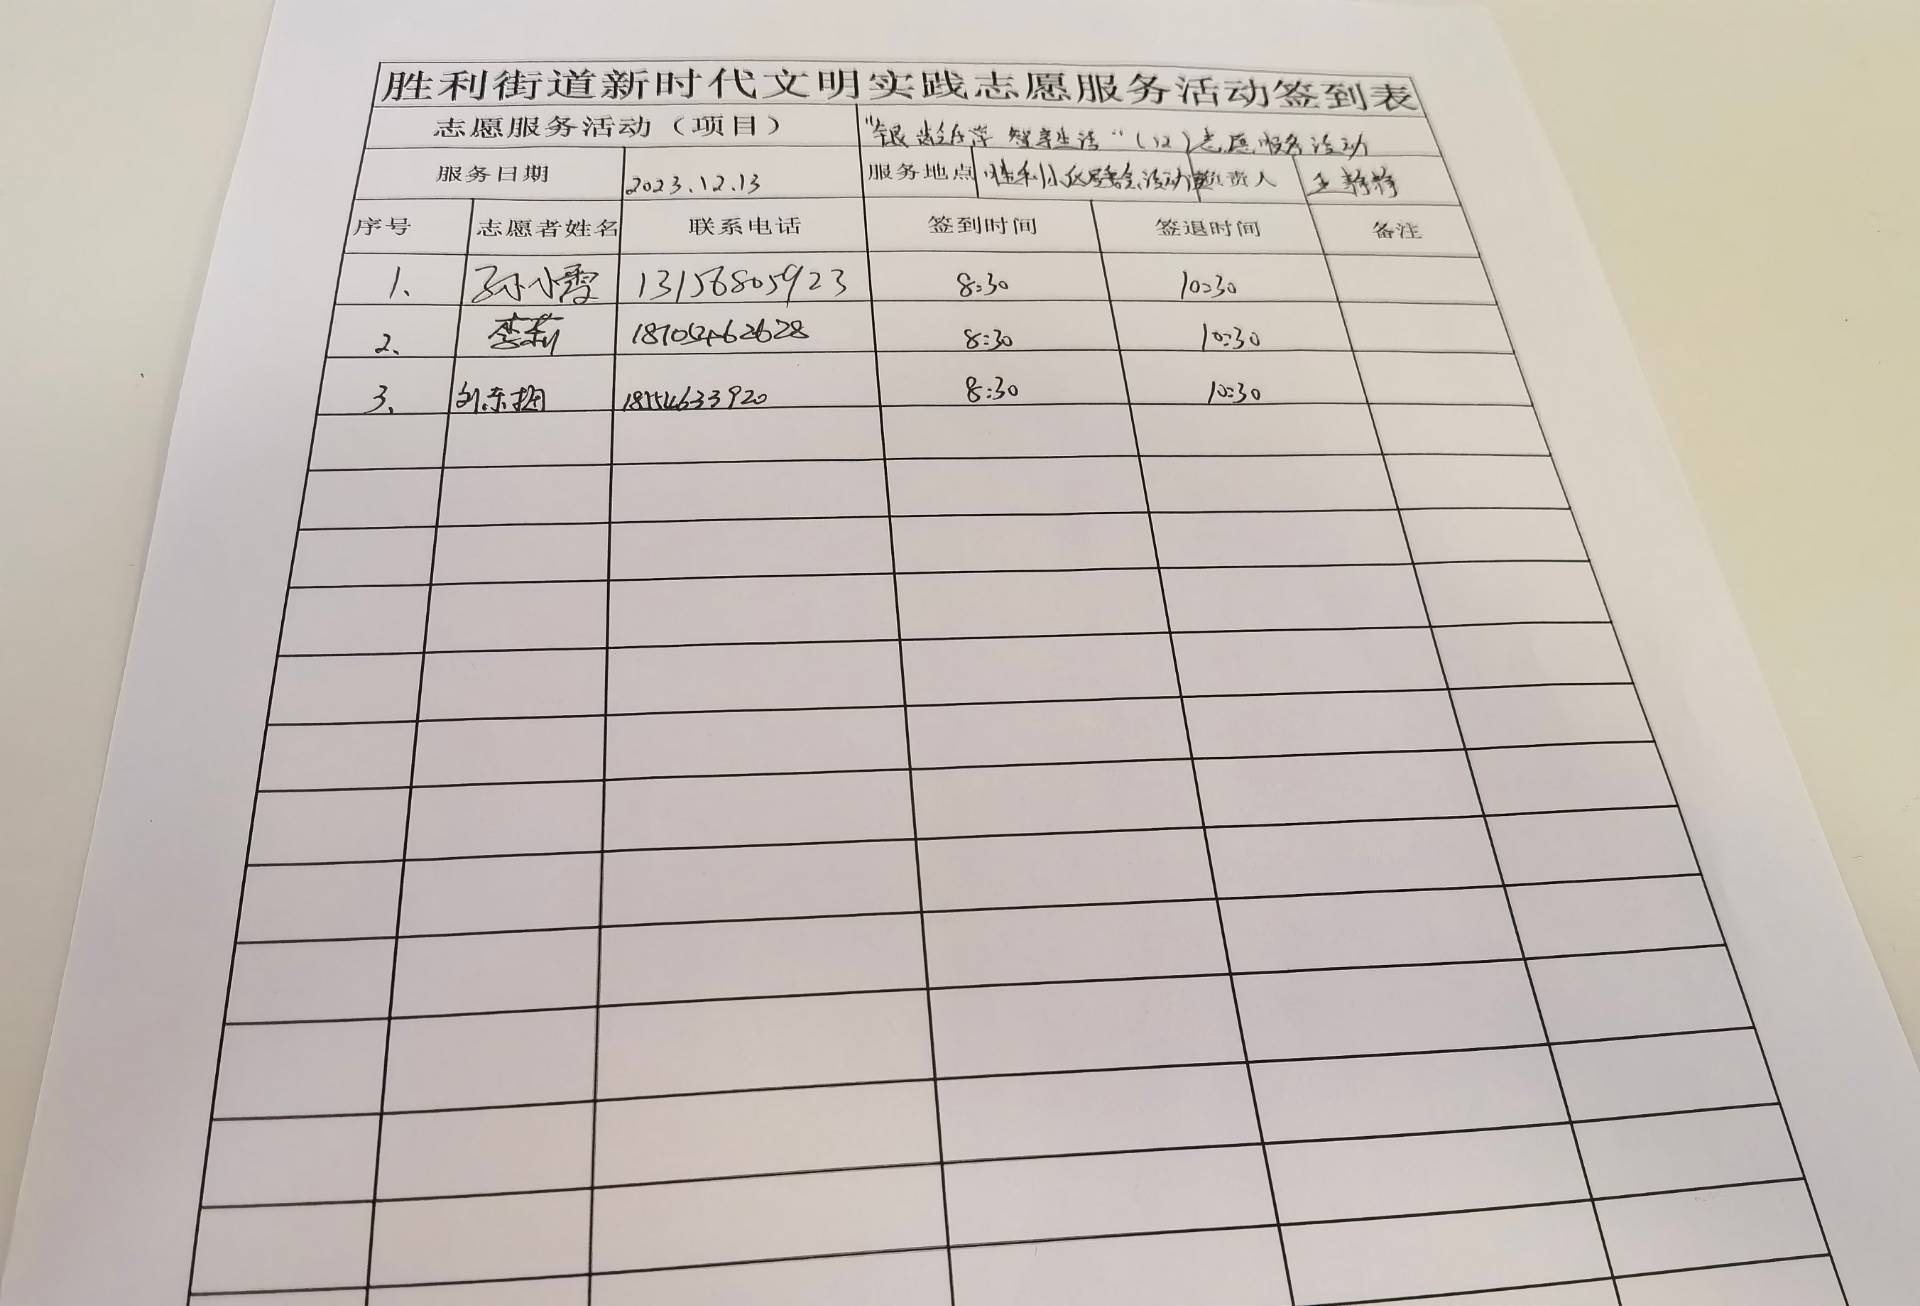 胜利街道新时代文明实践志愿服务活动签到表
志愿服务活动（项目） "银龄乐萍 智享生活"（12）志愿服务活动
服务日期 2023.12.13 服务地点 胜利小区 活动 负责人 王静静
序号 志愿者姓名 联系电话 签到时间 签退时间 备注
1、 孙小霞 13156805923 8:30 10:30
2、 李莉 18705462628 8:30 10:30
3、 刘东 18554633920 8:30 10:30